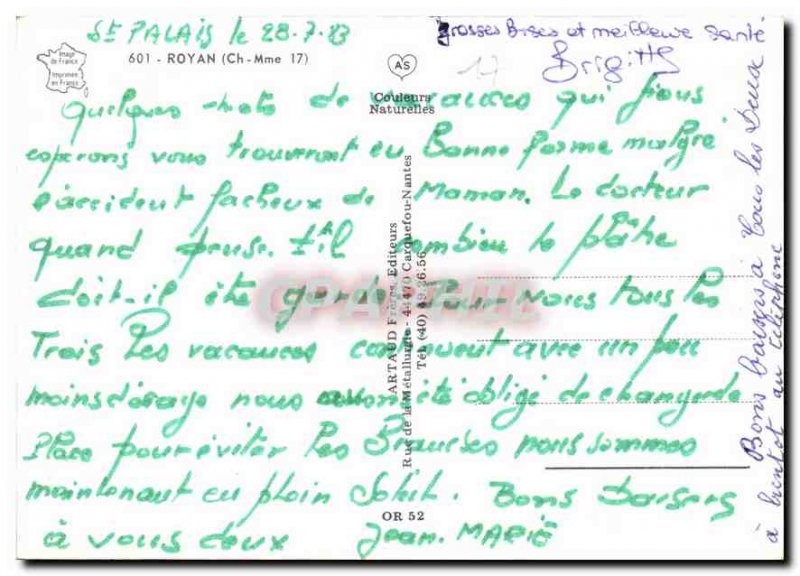 St PALAIS le 28.7.83
grosses Bises et meilleure santé
Brigitte
601 - ROYAN (Ch-Mme 17)
Image
de France
Imprimée
en France
AS
17
Couleurs
Naturelles
quelques mots de vacances qui nous
esperons vous trouveront en Bonne forme malgré
l'accident facheux de Maman. Le docteur
quand pense. t'il combien le plâtre
doit-il été garder Pour nous tous les
Trois les vacances continuent avec un peu
moins d'orage nous avons été obligé de changer de
place pour éviter les nous sommes
maintenant en plein Soleil. Bons Baisers
à vous deux Jean. MARIE
ARTAUD Frères, Editeurs
Rue de la Métallurgie - 44470 Carquefou-Nantes
Tél. (40) 49.26.56
OR 52
CPAPHIL
Bons baisers à Tous les Deux
à bientot au téléphone